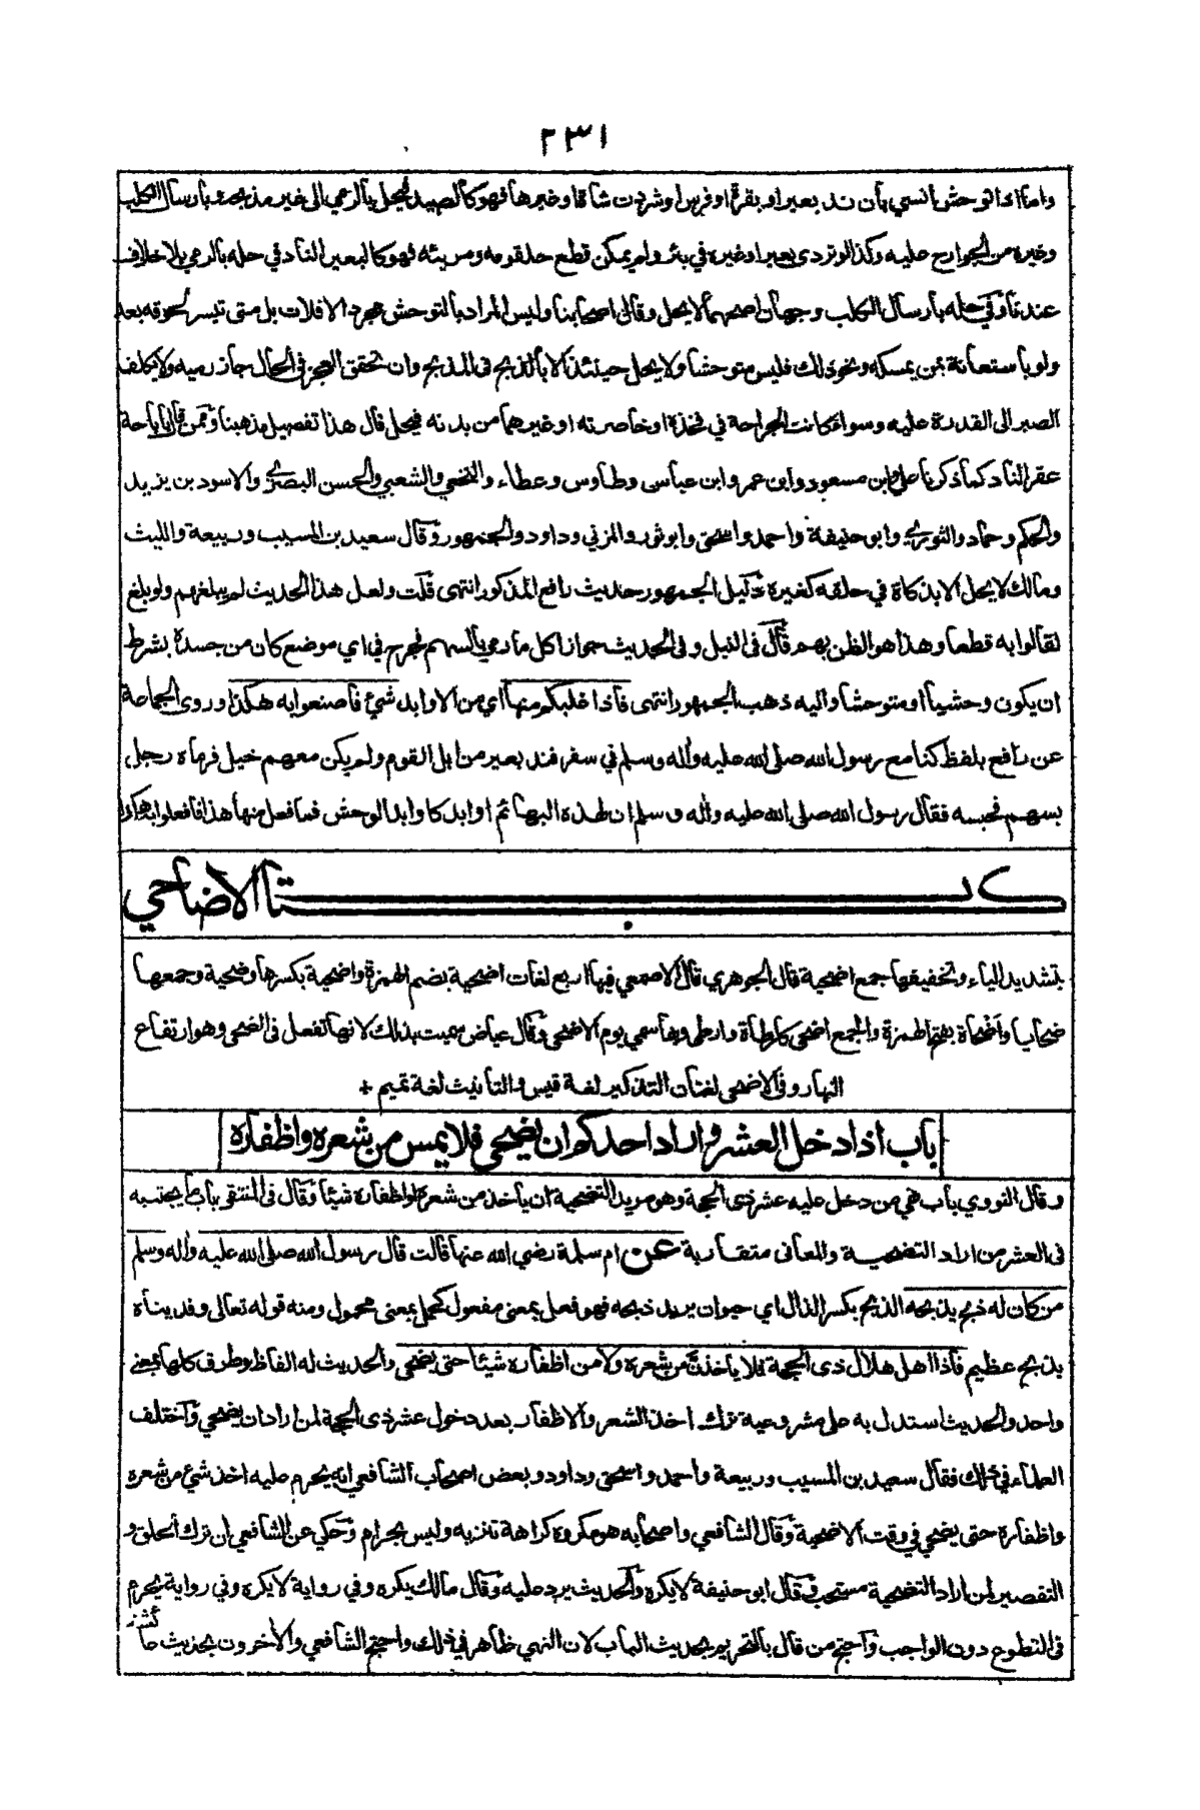 ٢٣١
واما اذا توحش انسي بان ند بعير او بقرة او فرس او شردت شاة او غيرها فهو كالصيد فيحل بالرمي الى غير مذبحه وبارسال الكلب
وغيره من الجوارح عليه وكذا لو تردى بعير او غيره في بئر ولم يمكن قطع حلقومه ومريئه فهو كالبعير الناد في حله بالرمي بلا خلاف
عندنا وفي حله بارسال الكلب وجهان اصحهما لا يحل وقال اصحابنا وليس المراد بالتوحش مجرد الافلات بل متى تيسر لحوقه بعد
ولو باستعانة بمن يمسكه ونحو ذلك فليس متوحشا ولا يحل حينئذ الا بالذبح في المذبح وان تحقق العجز في الحال جاز رميه ولا يكلف
الصبر الى القدرة عليه وسواء كانت الجراحة في فخذه او خاصرته او غيرهما من بدنه فيحل قال هذا تفصيل مذهبنا وممن قال باباحة
عقر الناد كما ذكرنا علي وابن مسعود وابن عمر وابن عباس وطاوس وعطاء والنخعي والشعبي والحسن البصري والاسود بن يزيد
والحكم وحماد والثوري وابو حنيفة واحمد واسحق وابو ثور والمزني وداود والجمهور وقال سعيد بن المسيب وربيعة والليث
ومالك لا يحل الا بذكاة في حلقه كغيره دليل الجمهور حديث رافع المذكور انتهى قلت ولعل هذا الحديث لم يبلغهم ولو بلغ
لقالوا به قطعا وهذا هو الظن بهم قال في النيل وفى الحديث جواز اكل ما رمي بالسهم فجرح في اي موضع كان من جسده بشرط
ان يكون وحشيا او متوحشا واليه ذهب الجمهور انتهى فاذا غلبكم منها اي من الاوابد شئ فاصنعوا به هكذا وروى الجماعة
عن رافع بلفظ كنا مع رسول الله صلى الله عليه واله وسلم في سفر فند بعير من ابل القوم ولم يكن معهم خيل فرماه رجل
بسهم فحبسه فقال رسول الله صلى الله عليه واله وسلم ان لهذه البهائم اوابد كاوابد الوحش فما فعل منها هذا فافعلوا به هكذا
كتاب الاضاحي
بتشديد الياء وتخفيفها جمع اضحية قال الجوهري قال الاصمعي فيها اربع لغات اضحية بضم الهمزة واضحية بكسرها وضحية وجمعها
ضحايا واضحاة بفتح الهمزة والجمع اضحى كارطاة وارطى وبها سمي يوم الاضحى وقال عياض سميت بذلك لانها تفعل في الضحى وهو ارتفاع
النهار وفى الاضحى لغتان التذكير لغة قيس والتانيث لغة تميم +
باب اذا دخل العشر واراد احدكم ان يضحي فلا يمس من شعره واظفاره
وقال النووي باب نهي من دخل عليه عشر ذى الحجة وهو مريد التضحية ان ياخذ من شعره او اظفاره شيئا وقال فى المنتقى باب ما يجتنبه
فى العشر من اراد التضحية والمعانى متقاربة عن ام سلمة رضي الله عنها قالت قال رسول الله صلى الله عليه واله وسلم
من كان له ذبح يذبحه الذبح بكسر الذال اي حيوان يريد ذبحه فهو فعل بمعنى مفعول كحمل بمعنى محمول ومنه قوله تعالى وفديناه
بذبح عظيم فاذا اهل هلال ذى الحجة فلا ياخذن من شعره ولا من اظفاره شيئا حتى يضحي والحديث له الفاظ وطرق كلها بمعنى
واحد والحديث استدل به على مشروعية ترك اخذ الشعر والاظفار بعد دخول عشر ذى الحجة لمن اراد ان يضحي واختلف
العلماء في ذلك فقال سعيد بن المسيب وربيعة واحمد واسحق وداود وبعض اصحاب الشافعي انه يحرم عليه اخذ شئ من شعره
واظفاره حتى يضحي في وقت الاضحية وقال الشافعي واصحابه هو مكروه كراهة تنزيه وليس بحرام وحكي عن الشافعي ان ترك الحلق و
التقصير لمن اراد التضحية مستحب وقال ابو حنيفة لا يكره والحديث يرد عليه وقال مالك يكره وفي رواية لا يكره وفي رواية يحرم
فى التطوع دون الواجب واحتج من قال بالتحريم بحديث الباب لان النهي ظاهر في ذلك واحتج الشافعي والاخرون بحديث عائشة